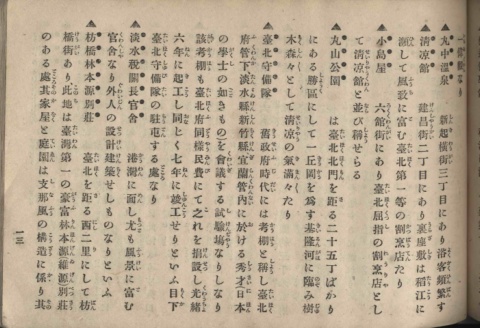 ▲丸中溫泉　新起橫街三丁目にあり浴客頻繁す
▲清凉館　建昌街二丁目にあり裏座敷は稻江に
瀕して風致に富む臺北第一等の割烹店たり
▲小島屋　六館街にあり臺北屈指の割烹店とし
て清凉館と並び稱せらる
▲丸山公園　は臺北北門を距る二十五丁ばかり
にある勝區にして一丘岡を爲す基隆河に臨み樹
木森々として清凉の氣滿々たり
▲臺北守備隊　舊政府時代には考棚と稱し臺北
府管下淡水縣新竹縣宜蘭管內に於ける秀才(日本
の學士の如きもの)を會議する試驗塲なりしなり
該考棚も臺北府同樣民費にて之れを掯築し光緖
六年に起工し同じく七年に竣工せりといふ目下
臺北守備隊の駐屯する處なり
▲淡水稅關長官舍　港灣に面し尤も風景に富む
官舍なり外人の設計建築せしものなりといふ
▲枋橋林本源別莊　臺北を距る西二里にして枋
橋街あり此地は臺灣第一の豪富林本源維源別莊
のある處其家屋と庭園は支那風の構造に係り其
一三